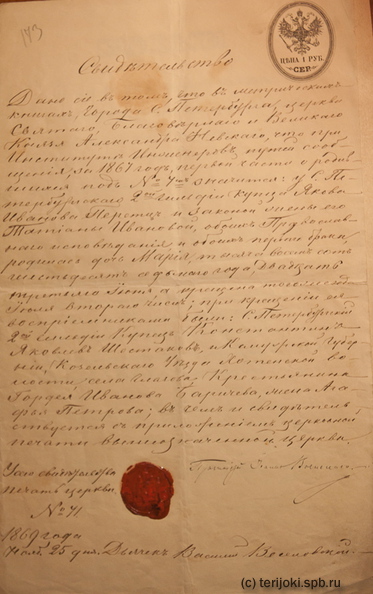 143
ЦѢНА 1 РУБ.
СЕР.
Свидѣтельство
Дано сіе въ томъ, что въ метрическихъ
книгахъ, города С. Петербурга, церкви
Святаго, Благовѣрнаго и Великаго
Князя Александра Невскаго, что при
Институтѣ Инженеровъ путей сооб-
щенія, за 1867 годъ, первой части о родив-
шихся подъ № значится: у С. Пе-
тербургскаго 2й гильдіи купца Якова
Иванова и законной жены его
Татіаны Ивановой, обоихъ Православ-
наго исповѣданія и обоихъ первымъ бракомъ
родилась дочь Марія, тысяча восемь сотъ
шестьдесятъ седьмаго года, Двадцать
Іюня а крещена того же года
Іюля втораго числа; при крещеніи ея
воспріемниками были: С. Петербургскій
2й гильдіи Купецъ Константинъ
Яковлевъ Шестаковъ, и Калужской Губер-
ніи, Козельскаго Уѣзда во-
лости, села Крестьянина
Гордея Иванова жена Ага-
фья Петрова; въ чемъ и свидѣтель-
ствуется съ приложеніемъ церковной
печати вышеозначенной церкви.
У сего свидѣтельства
печать церкви
№ 71
1869 года
25 дня. Дьячекъ Василій
(c) terijoki.spb.ru